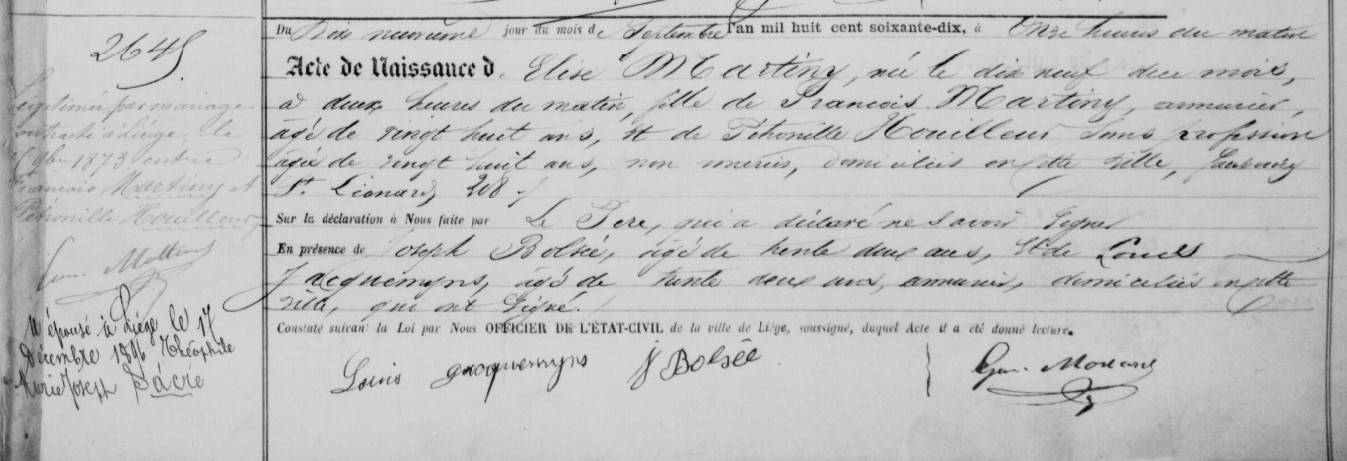 2645
Légitimée par mariage
contracté à Liége, le
9bre 1873 entre
François Martiny et
Pétronille Houilleux
Du Dix neuvième jour du mois de Septembre l'an mil huit cent soixante-dix, à Onze heures du matin
Acte de Naissance d. Elise Martiny, née le dix neuf duu mois,
à deux heures du matin, fille de François Martiny, armurier,
âgé de vingt huit ans, et de Pétronille Houilleux, Sans profession
âgée de vingt huit ans, non mariés, domiciliés en cette ville, faubourg
St Léonard, 208
Sur la déclaration à Nous faite par Le Père, qui a déclaré ne savoir signer
En présence de Joseph Bolsée, âgé de trente deux ans, et de Louis
Jacquemyns, âgé de trente deux ans, armuriers, domiciliés en cette
ville, qui ont signé.
Constaté suivant la Loi par Nous OFFICIER DE L'ÉTAT-CIVIL de la ville de Liége, soussigné, duquel Acte il a été donné lecture.
Louis Jacquemyns J Bolsée
A épousé à Liége le 17
Décembre 1896 Théophile
Marie Joseph Sacré